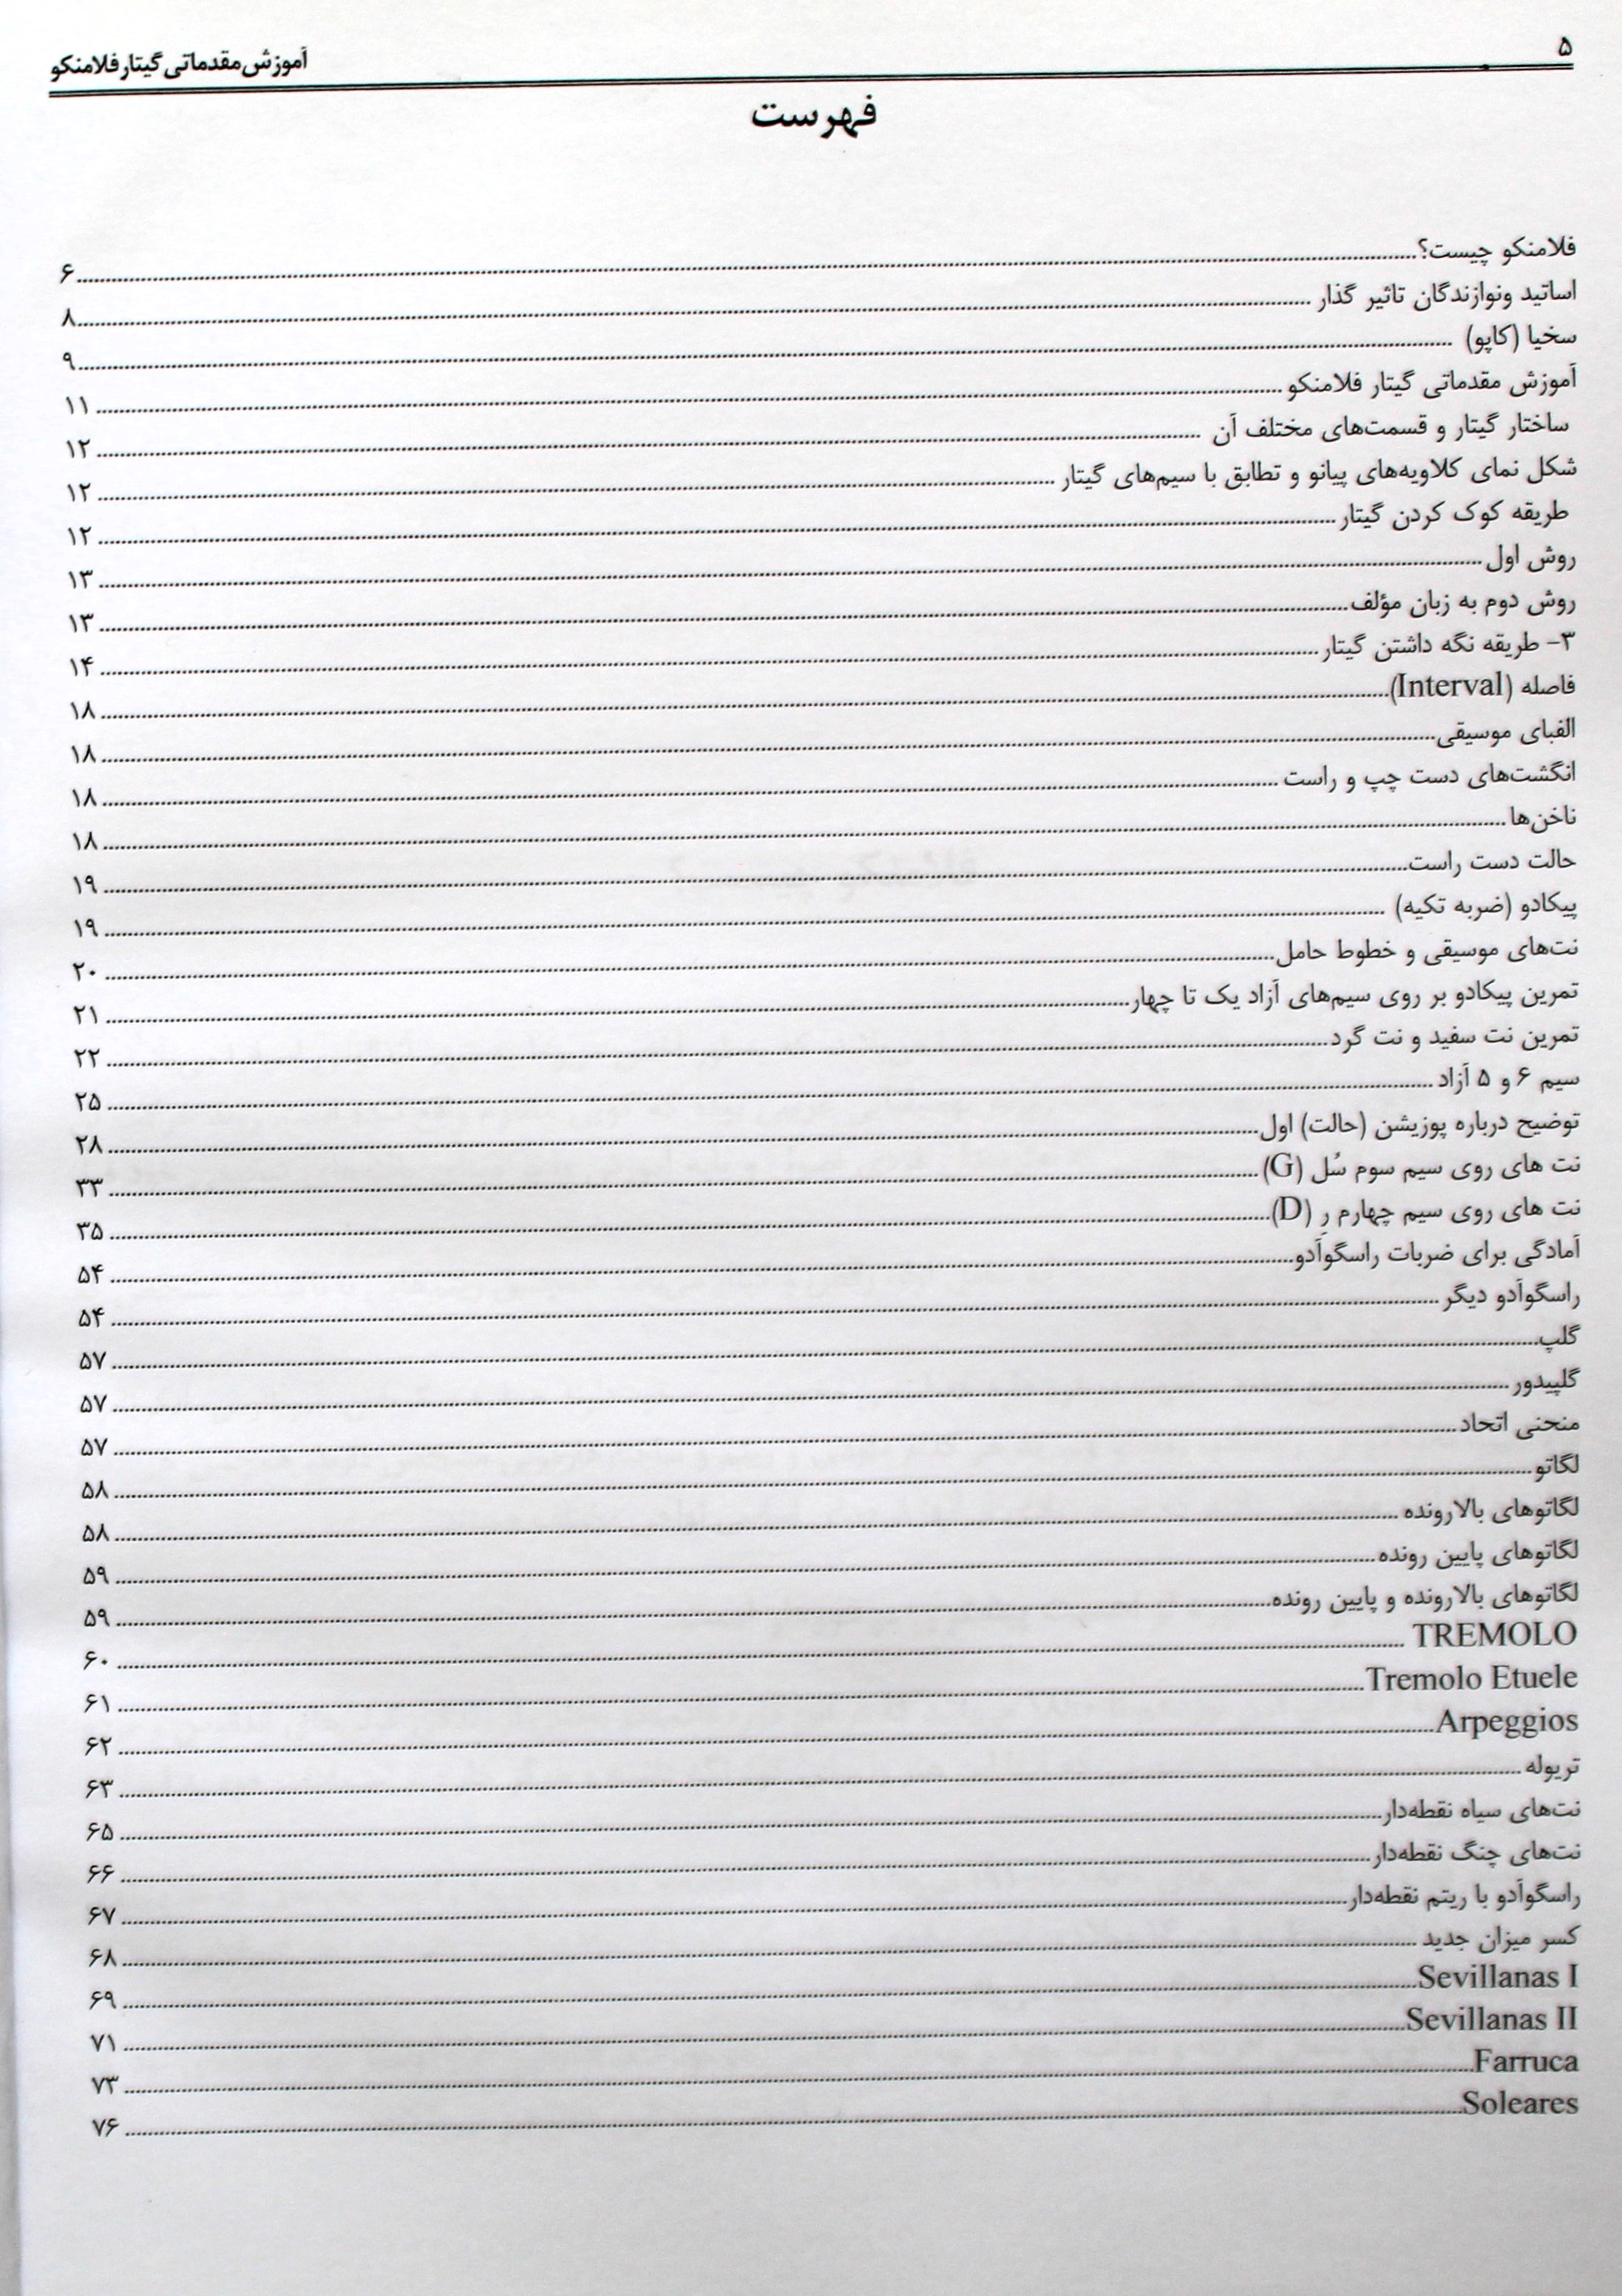 ۵
آموزش مقدماتی گیتار فلامنکو
فهرست
فلامنکو چیست؟ ۶
اساتید ونوازندگان تاثیر گذار ۸
سخیا (کاپو) ۹
آموزش مقدماتی گیتار فلامنکو ۱۱
ساختار گیتار و قسمت‌های مختلف آن ۱۲
شکل نمای کلاویه‌های پیانو و تطابق با سیم‌های گیتار ۱۲
طریقه کوک کردن گیتار ۱۲
روش اول ۱۳
روش دوم به زبان مؤلف ۱۳
۳- طریقه نگه داشتن گیتار ۱۴
فاصله (Interval) ۱۸
الفبای موسیقی ۱۸
انگشت‌های دست چپ و راست ۱۸
ناخن‌ها ۱۸
حالت دست راست ۱۹
پیکادو (ضربه تکیه) ۱۹
نت‌های موسیقی و خطوط حامل ۲۰
تمرین پیکادو بر روی سیم‌های آزاد یک تا چهار ۲۱
تمرین نت سفید و نت گرد ۲۲
سیم ۶ و ۵ آزاد ۲۵
توضیح درباره پوزیشن (حالت) اول ۲۸
نت های روی سیم سوم سُل (G) ۳۳
نت های روی سیم چهارم رِ (D) ۳۵
آمادگی برای ضربات راسگوآدو ۵۴
راسگوآدو دیگر ۵۴
گلپ ۵۷
گلپیدور ۵۷
منحنی اتحاد ۵۷
لگاتو ۵۸
لگاتوهای بالارونده ۵۸
لگاتوهای پایین رونده ۵۹
لگاتوهای بالارونده و پایین رونده ۵۹
TREMOLO ۶۰
Tremolo Etuele ۶۱
Arpeggios ۶۲
تریوله ۶۳
نت‌های سیاه نقطه‌دار ۶۵
نت‌های چنگ نقطه‌دار ۶۶
راسگوآدو با ریتم نقطه‌دار ۶۷
کسر میزان جدید ۶۸
Sevillanas I ۶۹
Sevillanas II ۷۱
Farruca ۷۳
Soleares ۷۶